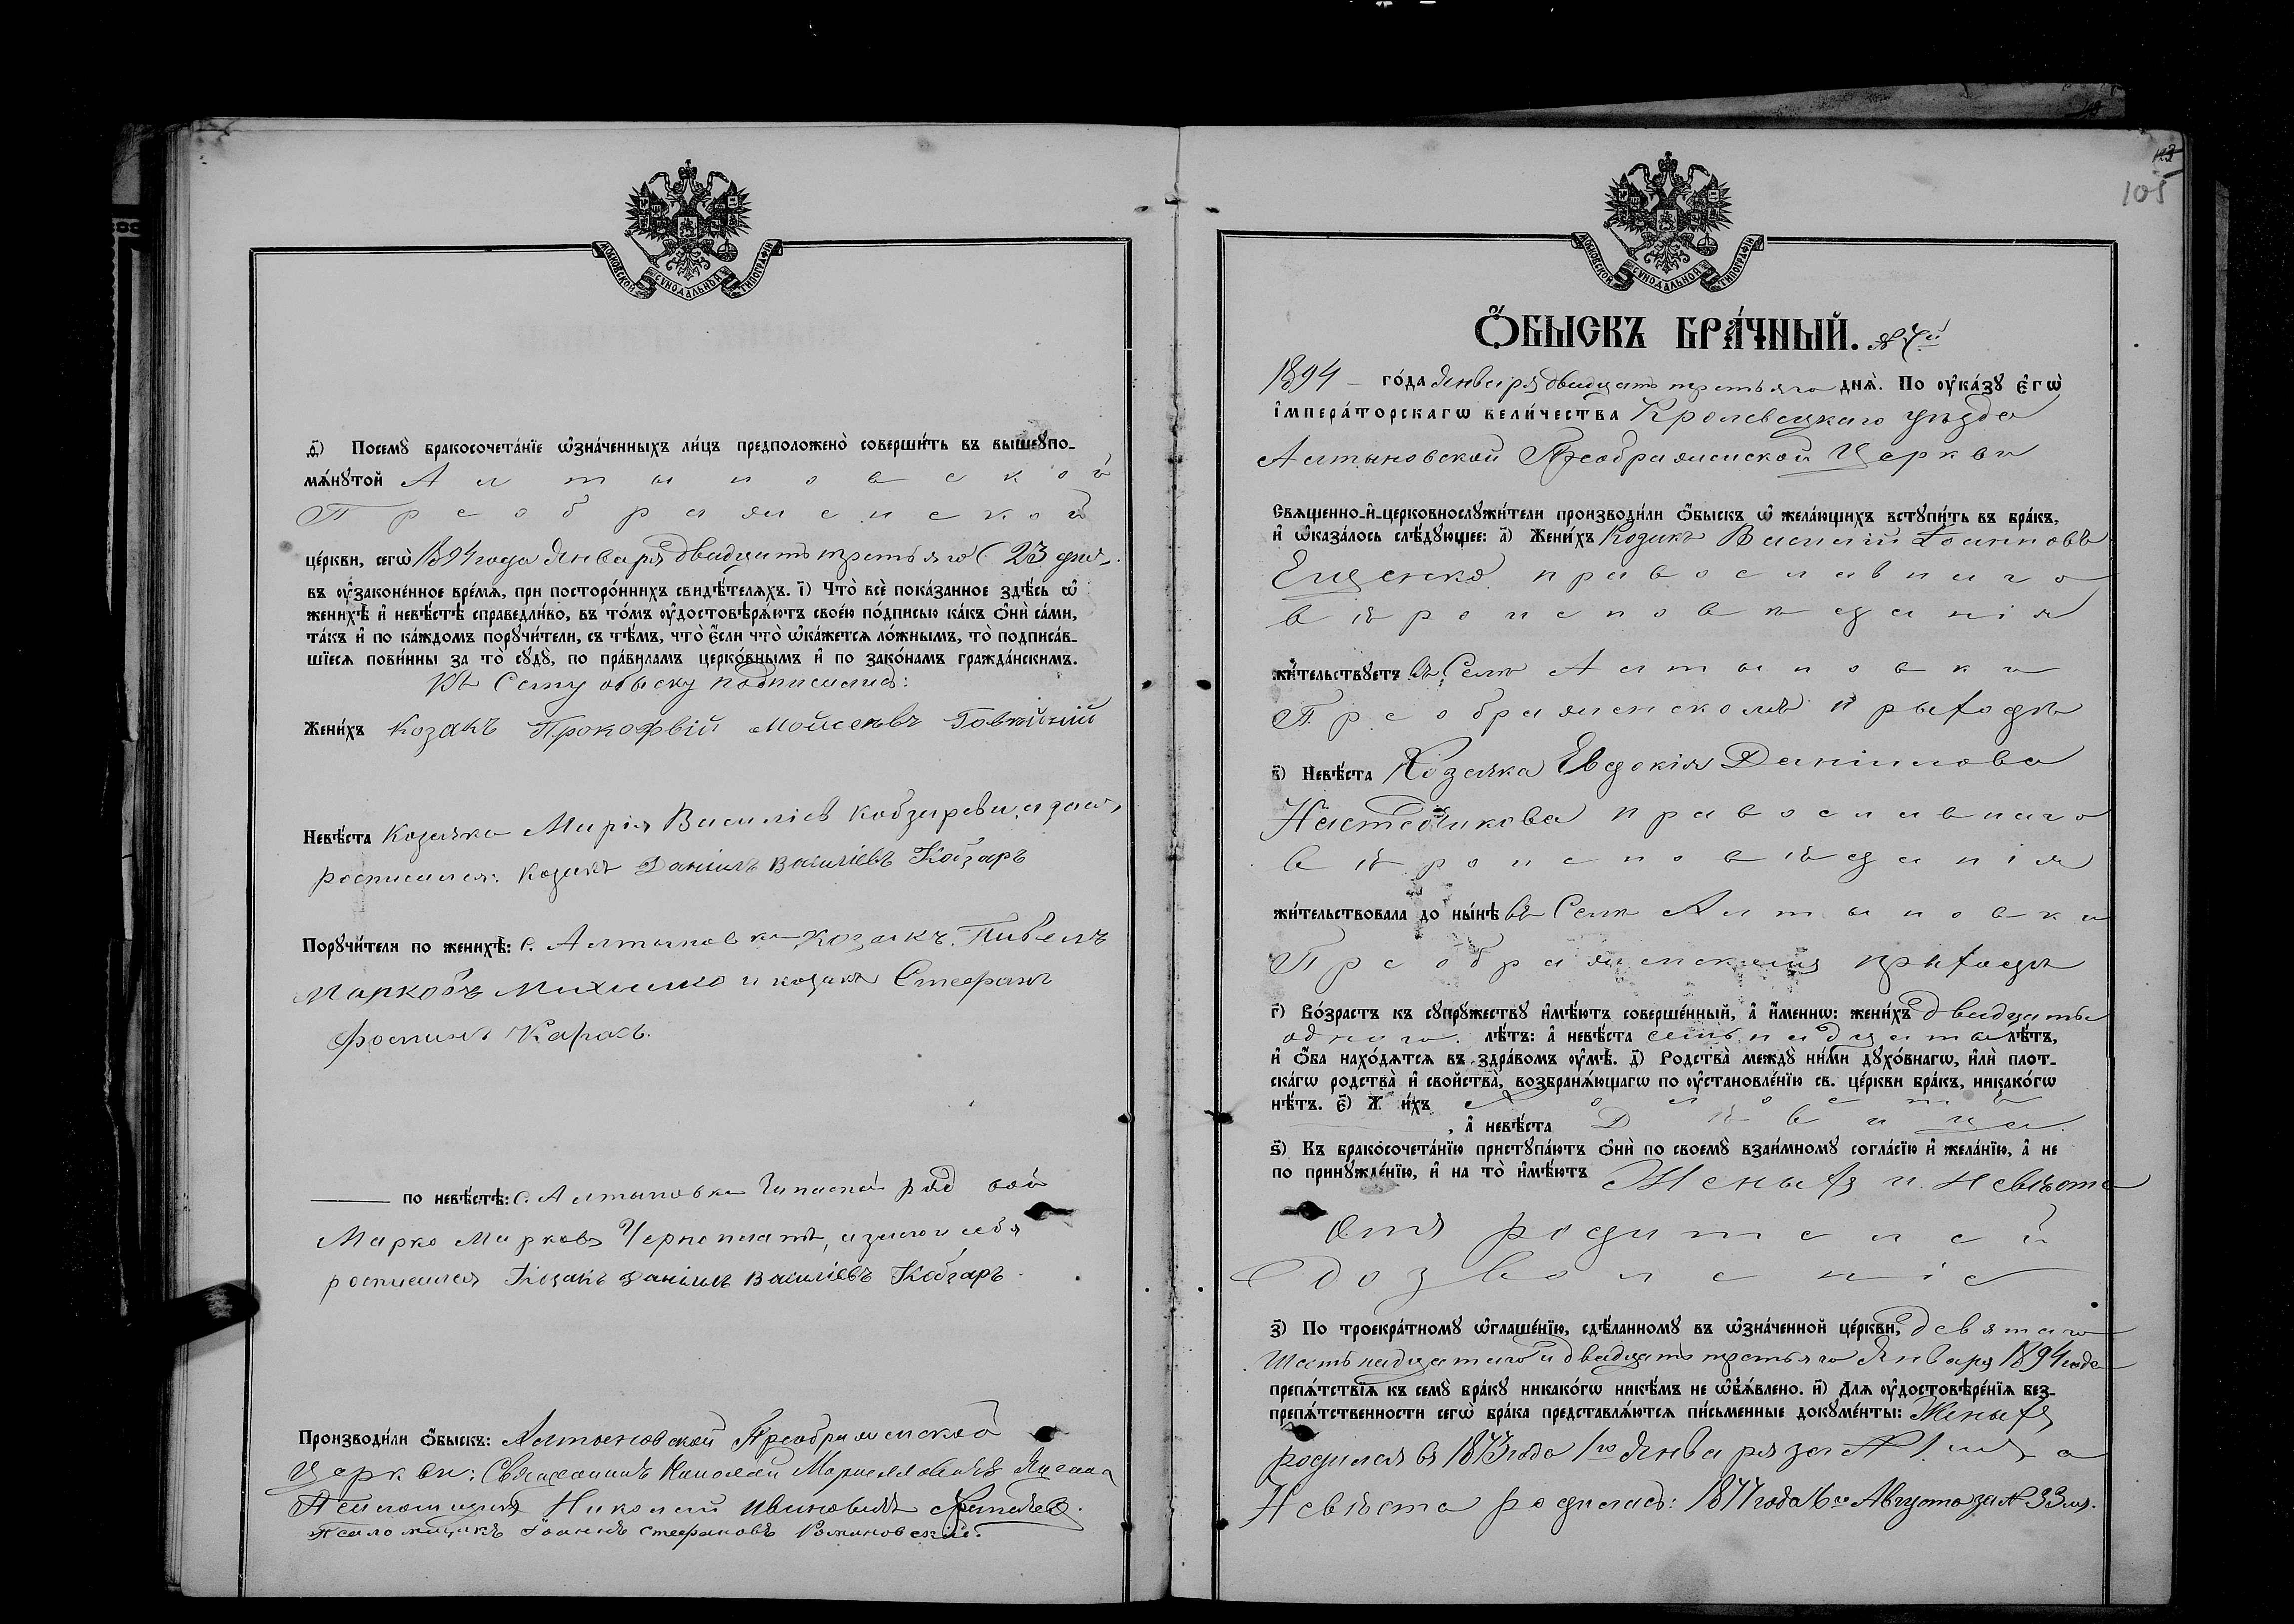 МОСКОВСКОЙ СѴНОДАЛЬНОЙ ТИПОГРАФІИ
д҃) Посемꙋ̀ бракосочета́нїе ѡ҆зна́ченныхъ ли́цъ предположено̀ соверши́ть въ вышеꙋпо-
мѧ́нꙋтой Алтыновской
Преображенской
це́ркви, сегѡ̀ 1894 года Января двадцать третьяго (23 дня
въ ᲂу҆зако́ненное вре́мѧ, при посторо́ннихъ свидѣ́телѧхъ. і҃) Что̀ всѐ пока́занное здѣ́сь ѡ҆
женихѣ̀ и҆ невѣ́стѣ справедли́во, въ то́мъ ᲂу҆достовѣрѧ́ютъ свое́ю по́дписью ка́къ ѻ҆нѝ са́ми,
та́къ и҆ по ка́ждомъ порꙋчи́тели, съ тѣ́мъ, что̀ є҆́сли что̀ ѡ҆ка́жетсѧ ло́жнымъ, то̀ подписа́в-
шїесѧ пови́нны за то̀ сꙋдꙋ̀, по пра́виламъ церко́внымъ и҆ по зако́намъ гражда́нскимъ.
Къ сему обыску подписались:
Жени́хъ Козакъ Прокофвій Мойсеявъ
Невѣ́ста Козачка Марія Василіев Кобзарева, а за нея
росписался: Козакъ Даніилъ Василіевъ Кобзаръ
Порꙋчи́тели по женихѣ̀: с. Алтыновки Козакъ Павелъ
Марковъ Михилко и козакъ Стефанъ
Фоминъ
по невѣ́стѣ: с. Алтыновки Запасный рядовой
Марко Марковъ а за него себя
росписался Козакъ Даніилъ Василіевъ Кобзаръ.
Производи́ли ѻ҆́быскъ: Алтыновской Преображенской
Церкви: Священникъ Николай
Псаломщикъ Николай Ивановичъ
Псаломщикъ Іоаннъ Стефановъ Романовскій.
105
МОСКОВСКОЙ СѴНОДАЛЬНОЙ ТИПОГРАФІИ
Ѻ҆́БЫСКЪ БРА́ЧНЫЙ. № 4й
1894 го́да Января двадцать третьяго днѧ̀. По ᲂу҆ка́зꙋ є҆гѡ̀
і҆мпера́торскагѡ вели́чества Кролевецкаго уѣзда
Алтыновской Преображенской Церкви
Свѧщенно-и҆-церковнослꙋжи́тели производи́ли ѻ҆́быскъ ѡ҆ жела́ющихъ встꙋпи́ть въ бра́къ,
и҆ ѡ҆каза́лось слѣ́дꙋющее: а҃) Жени́хъ Козакъ Василій Іоанновъ
Ещенко православнаго
вѣроисповѣданія
жи́тельствꙋетъ въ Селѣ Алтыновки
Преображенскомъ приходѣ
в҃) Невѣ́ста Козачка Евдокія Даніилова
православнаго
вѣроисповѣданія
жи́тельствовала до ны́нѣ въ Селѣ Алтыновки
Преображенскомъ приходѣ
г҃) Во́зрастъ къ сꙋпрꙋ́жествꙋ и҆мѣ́ютъ соверше́нный, а҆ и҆́меннѡ: жени́хъ двадцать
одного лѣ́тъ: а҆ невѣ́ста семьнадцать лѣ́тъ,
и҆ ѻ҆́ба нахо́дѧтсѧ въ здра́вомъ ᲂу҆мѣ̀. д҃) Родства̀ междꙋ̀ ни́ми дꙋхо́внагѡ, и҆лѝ плот-
ска́гѡ родства̀ и҆ свойства̀, возбранѧ́ющагѡ по ᲂу҆становле́нїю св. це́ркви бра́къ, никако́гѡ
нѣ́тъ. є҃) Ж и́хъ холостъ
, а҆ невѣ́ста Дѣвица.
ѕ҃) Къ бракосочета́нїю пристꙋпа́ютъ ѻ҆нѝ по своемꙋ̀ взаи́мномꙋ согла́сїю и҆ жела́нїю, а҆ не
по принꙋжде́нїю, и҆ на то̀ и҆мѣ́ютъ Женихъ и невѣста
отъ родителей
дозволеніе
з҃) По троекра́тномꙋ ѡ҆глаше́нїю, сдѣ́ланномꙋ въ ѡ҆зна́ченной це́ркви, девятаго
шестьнадцатаго и двадцать третьяго Января 1894 года
препѧ́тствїѧ къ семꙋ̀ бра́кꙋ никако́гѡ никѣ́мъ не ѡ҆б̾ѧ́влено. и҃) Длѧ ᲂу҆достовѣре́нїѧ без-
препѧ́тственности сегѡ̀ бра́ка представлѧ́ютсѧ пи́сьменные докꙋме́нты: Женихъ
родился въ 1873 года 1го Января за № 1мъ а
Невѣста родилась: 1877 года 6го Августа за № 33мъ.